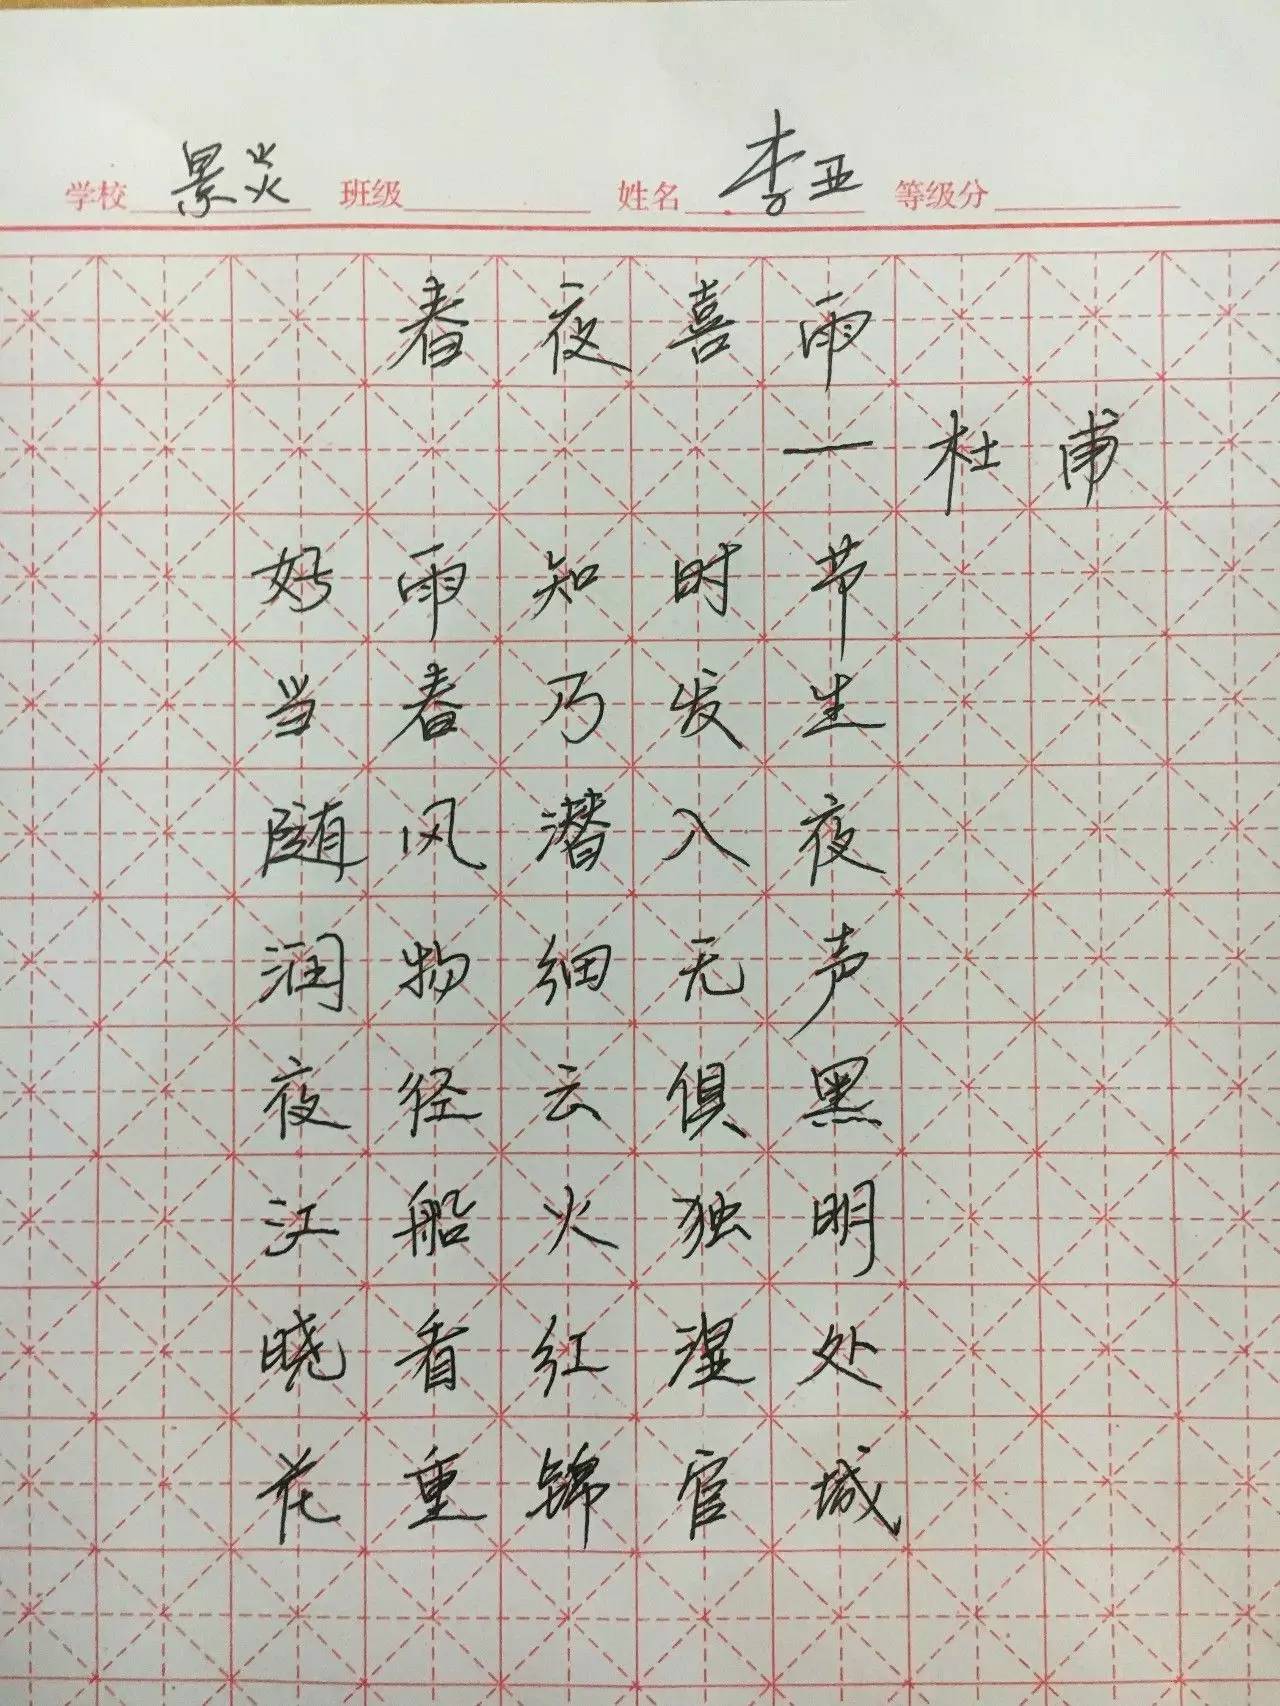 学校 景炎 班级 姓名 李亚 等级分
春夜喜雨
一杜甫
好雨知时节
当春乃发生
随风潜入夜
润物细无声
夜径云俱黑
江船火独明
晓看红湿处
花重锦官城